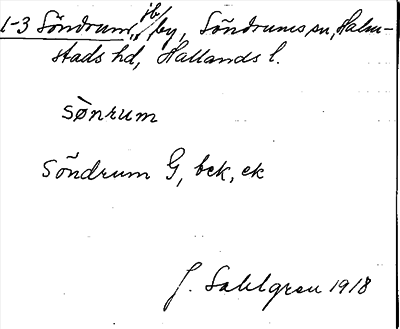 1-3 Söndrum, jb/by, Söndrums sn, Halm-
stads hd, Hallands l.
sònrum
Söndrum G, bck, ek
J. Sahlgren 1918